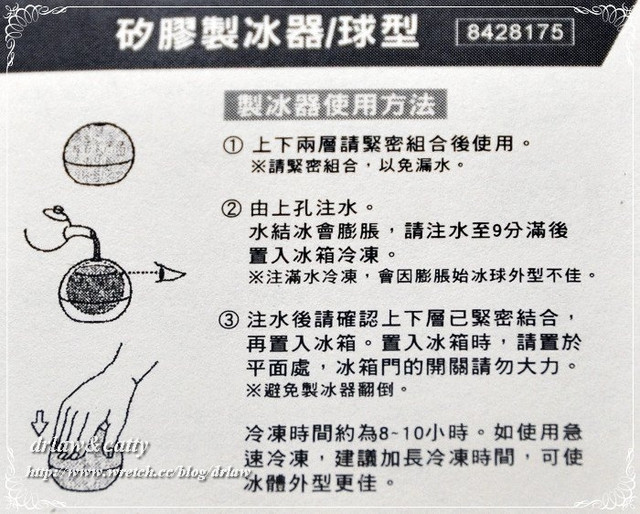 矽膠製冰器/球型
8428175
製冰器使用方法
① 上下兩層請緊密組合後使用。
※請緊密組合，以免漏水。
② 由上孔注水。
水結冰會膨脹，請注水至9分滿後
置入冰箱冷凍。
※注滿水冷凍，會因膨脹始冰球外型不佳。
③ 注水後請確認上下層已緊密結合，
再置入冰箱。置入冰箱時，請置於
平面處，冰箱門的開關請勿大力。
※避免製冰器翻倒。
冷凍時間約為8~10小時。如使用急
速冷凍，建議加長冷凍時間，可使
冰體外型更佳。
drlaw & catty
http://www.wretch.cc/blog/drlaw